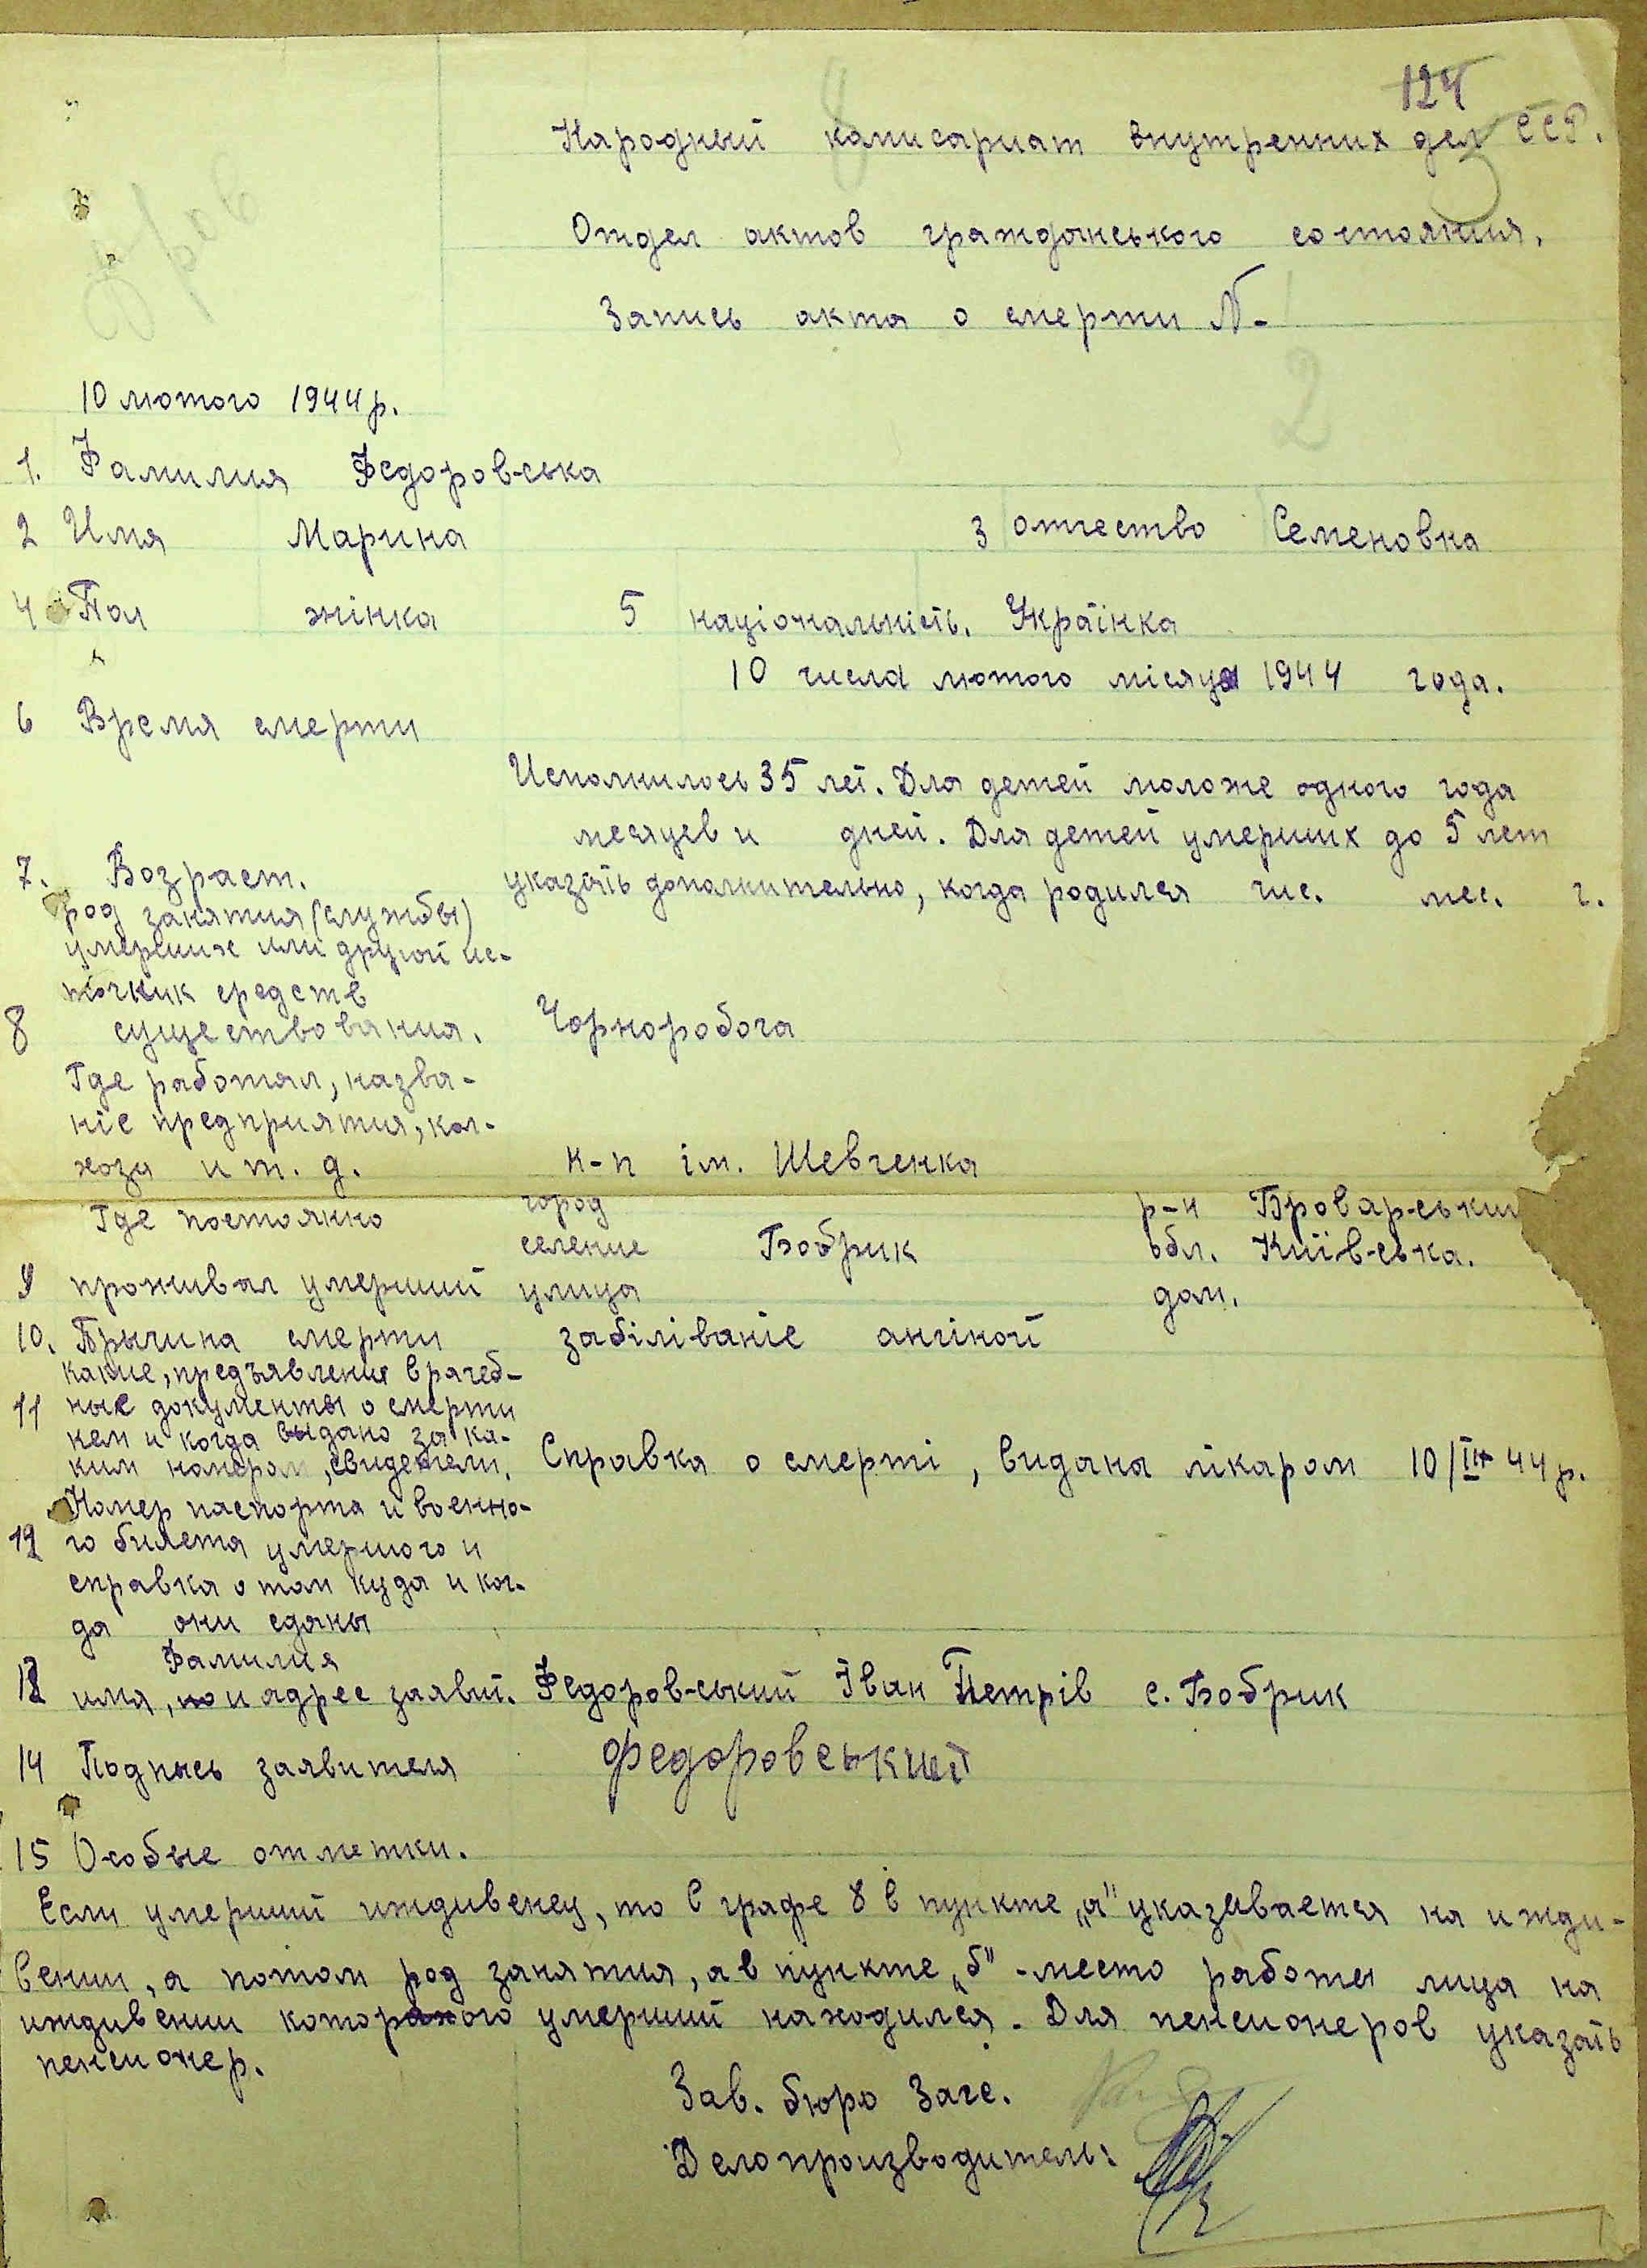 124
Народный комисариат внутренних дел ССР.
Отдел актов гражданського состояния.
Запись акта о смерти N-
2
10 лютого 1944 р.
1. Фамилия Федоровська
2 Имя Марина 3 отчество Семеновна
4 Пол жінка 5 національність. Українка
10 числа лютого місяця 1944 года.
6 Время смерти
Исполнилось 35 лет. Для детей моложе одного года
месяцев и дней. Для детей умерших до 5 лет
7. Возраст. указать дополнительно, когда родился чис. мес. г.
род занятия (службы)
умерших или другой ис-
точник средств
8 существования. Чорноробоча
Где работал, назва-
ніе предприятия, кол-
хоза и т. д. к-п ім. Шевченка
Где постоянно город р-н Броварський
селение Бобрик обл. Київська.
9 проживал умерший улица дом.
10. Прычина смерти забіліваніе ангіной
какие, предъявление врачеб-
11 ные документы о смерти
кем и когда выдано за ка-
ким номером, свидетели. Справка о смерті, видана лікаром 10/II 44 р.
Номер паспорта и военно-
12 го билета умершого и
справка о том куда и ког-
да они сданы
Фамилия
13 имя, и адрес заявит. Федоровський Іван Петрів с. Бобрик
14 Подпысь заявителя Федоровський
15 Особые отметки.
Если умерший иждивенец, то в графе 8 в пункте „а" указывается на ижди-
вении, а потом род занятия, а в пункте „б" - место работы лица на
иждивении которого умерший находился. Для пенсионеров указать
пенсионер.
Зав. бюро Загс.
Делопроизводитель: